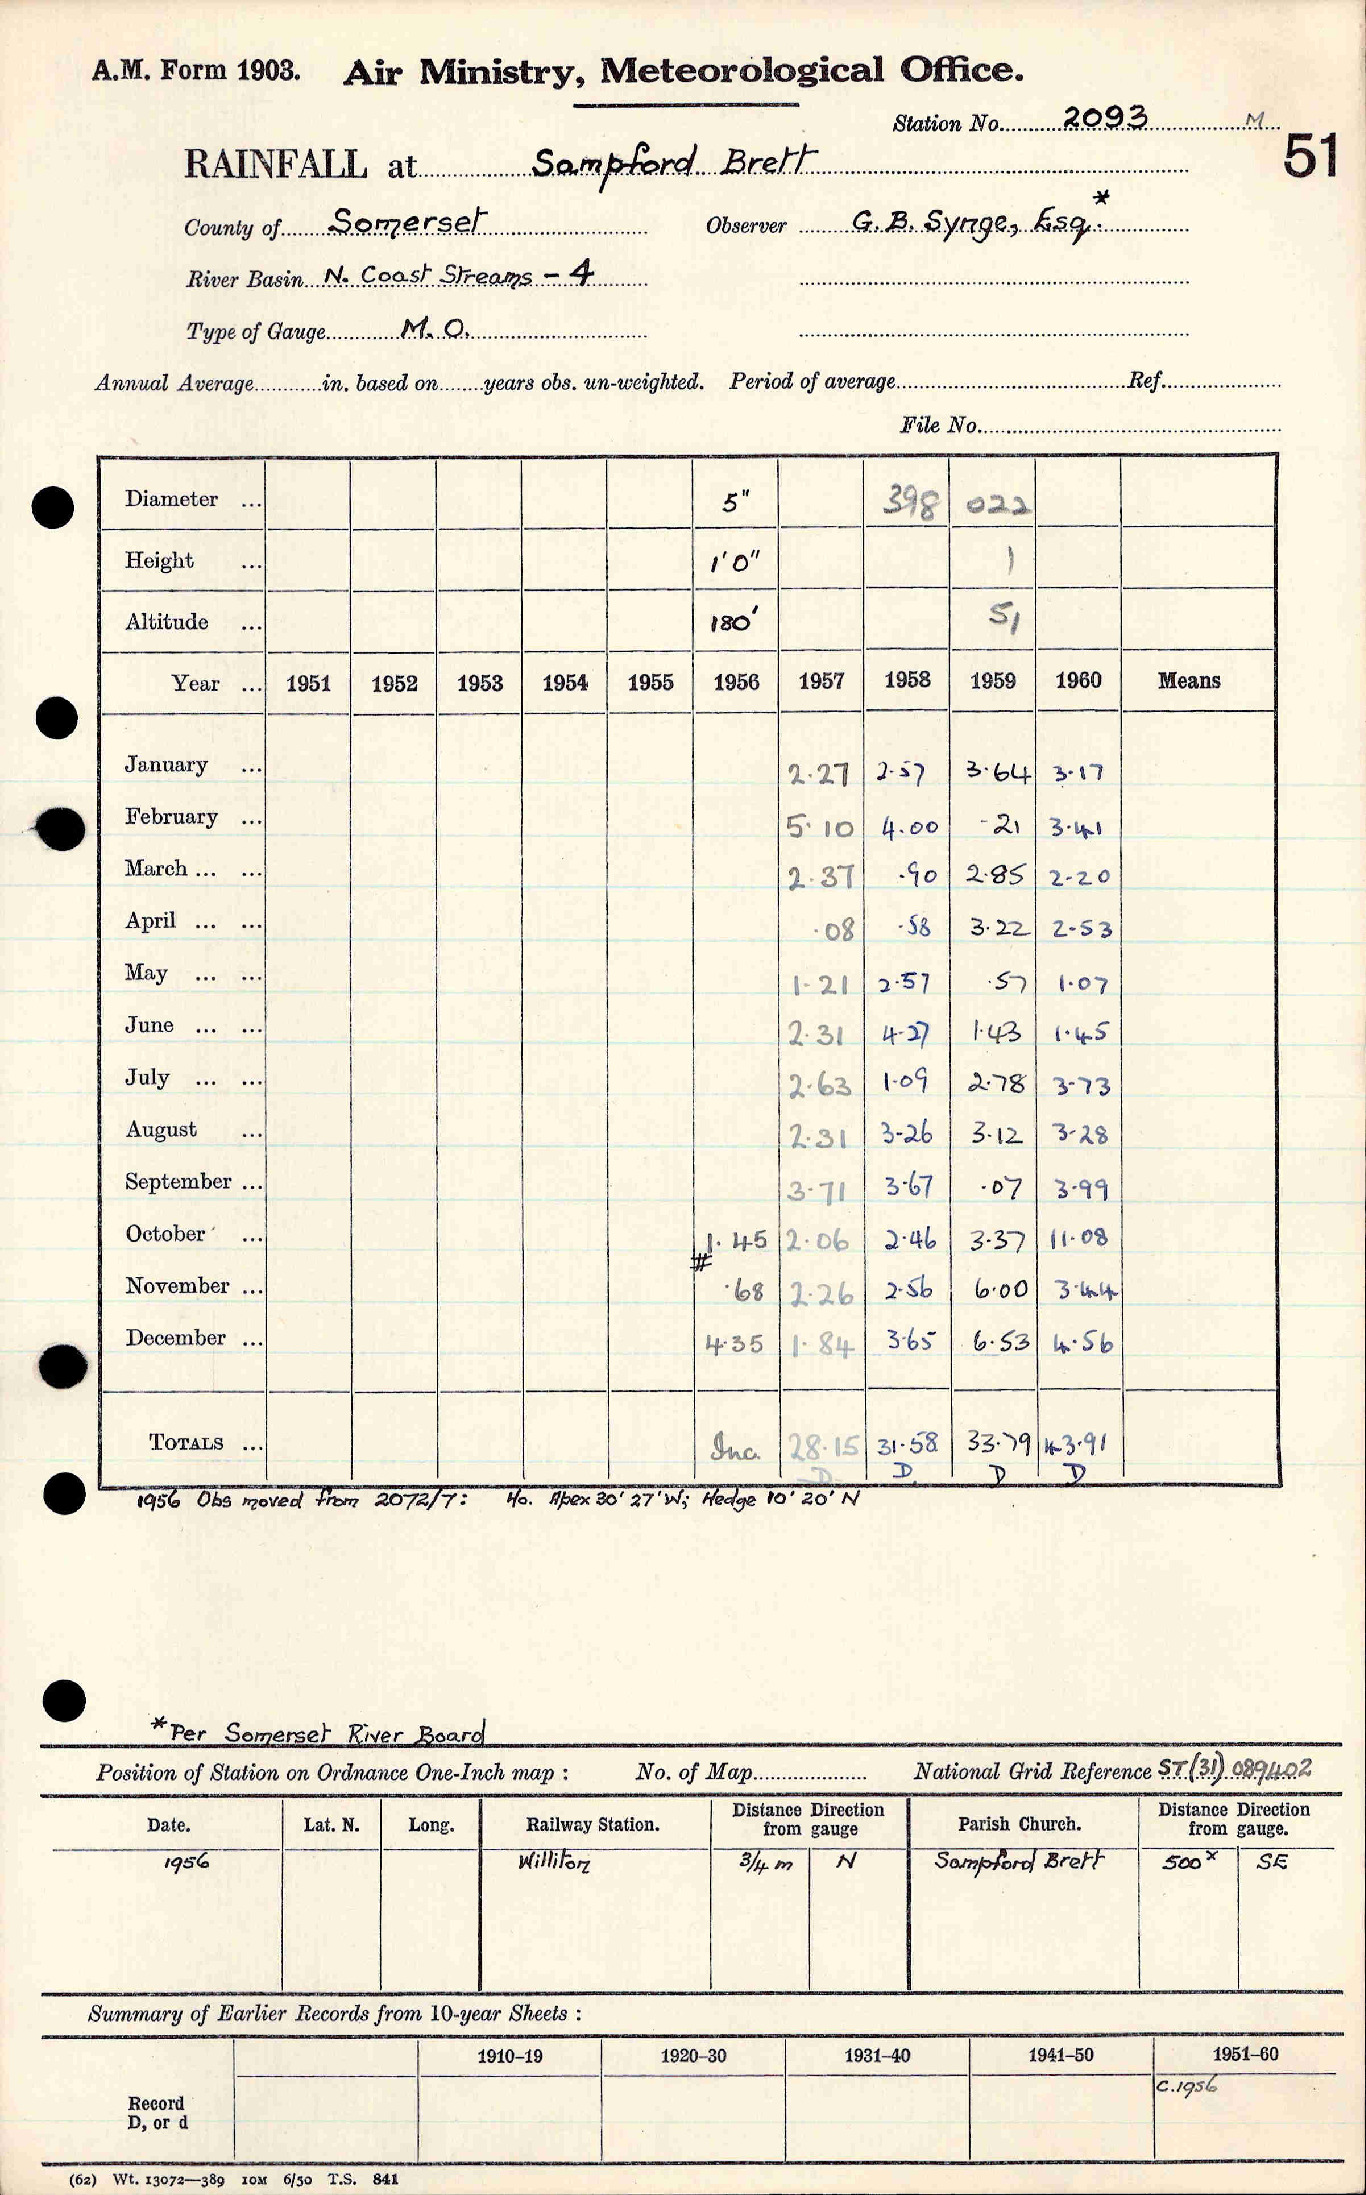 A.M. Form 1903. Air Ministry, Meteorological Office.
Station No. 2093 M
51
RAINFALL at Sampford Brett
County of Somerset Observer G. B. Synge, Esq.*
River Basin N. Coast Streams - 4
Type of Gauge M. O.
Annual Average in. based on years obs. un-weighted. Period of average Ref.
File No.
Diameter ... 5" 398 022
Height ... 1'0" 1
Altitude ... 180' 51
Year ... 1951 1952 1953 1954 1955 1956 1957 1958 1959 1960 Means
January ... 2.27 2.57 3.64 3.17
February ... 5.10 4.00 .21 3.41
March ... ... 2.37 .90 2.85 2.20
April ... ... .08 .58 3.22 2.53
May ... ... 1.21 2.57 .57 1.07
June ... ... 2.31 4.27 1.43 1.45
July ... ... 2.63 1.09 2.78 3.73
August ... 2.31 3.26 3.12 3.28
September ... 3.71 3.67 .07 3.99
October ... 1.45 2.06 2.46 3.37 11.08
#
November ... .68 2.26 2.56 6.00 3.44
December ... 4.35 1.84 3.65 6.53 4.56
TOTALS ... Inc. 28.15 31.58 33.79 43.91
D D D D
1956 Obs moved from 2072/7: Ho. Apex 30' 27' W; Hedge 10' 20' N
*Per Somerset River Board
Position of Station on Ordnance One-Inch map : No. of Map National Grid Reference ST(31) 089402
Date. Lat. N. Long. Railway Station. Distance Direction from gauge Parish Church. Distance Direction from gauge.
1956 Williton 3/4 m N Sampford Brett 500x SE
Summary of Earlier Records from 10-year Sheets :
1910–19 1920–30 1931–40 1941–50 1951–60
c.1956
Record
D, or d
(62) Wt. 13072—389 10M 6/50 T.S. 841